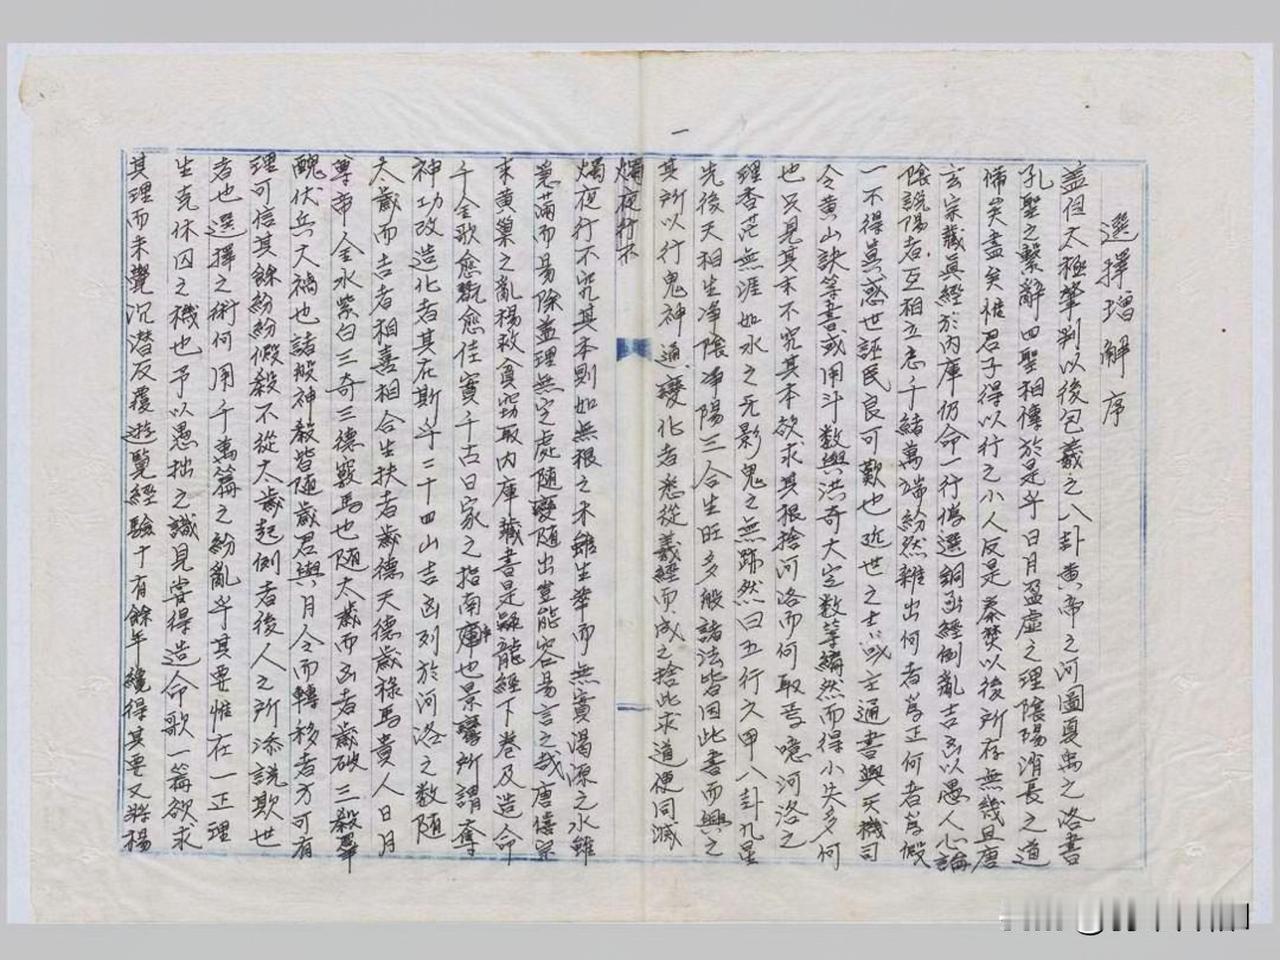 一
選擇增解序
蓋但太極肇判以後包羲之八卦黄帝之河圖夏禹之洛書
孔聖之繫辭四聖相傳於是乎日月盈虛之理陰陽消長之道
備矣盡矣惟君子得以行之小人反是秦焚以後所存無幾且唐
玄宗藏眞經於內庫仍命一行僞選銅函經倒亂吉凶以愚人心論
陰說陽者互相立忌千緒萬端紛然雜出何者爲正何者爲假
一不得其惑世誣民良可歎也近世之士或主通書與天機司
令黄山訣等書或用斗数與洪奇大定数等編然而得小失多何
也只見其末不究其本故求其根捨河洛而何取焉噫河洛之
理杳茫無涯如水之无影鬼之無跡然曰五行六甲八卦九星
先後天相生净陰净陽三合生旺多般諸法皆因此書而興之
其所以行鬼神通變化者悉從羲經而成之捨此求道便同滅
燭夜行不
燭夜行不究其本則如無根之木雖生華而無實渴源之水雖
寬蒲而易除蓋理無定處随變随出豈能容易言之哉唐僖宗
末黄巢之亂楊救貧窃取內庫藏書是疑龍經下卷及造命
千金歌愈翫愈佳實千古日家之指南車也景鸞所謂奪
神功改造化者其在斯乎二十四山吉凶列於河洛之数随
太歲而吉者相喜相合生扶者歲德天德歲祿馬貴人日月
尊帝金水紫白三奇三德竅馬也随太歲而凶者歲破三殺羣
醜伏兵大禍也諸般神殺皆随歲君與月令而轉移者方可有
理可信其餘紛紛假殺不從太歲起例者後人之所添說欺世
者也選擇之術何用千萬篇之紛亂乎其要惟在一正理
生克休囚之機也予以愚拙之識見嘗得造命歌一篇欲求
其理而未覺沉潜反覆遊覽經驗十有餘年纔得其要又將楊